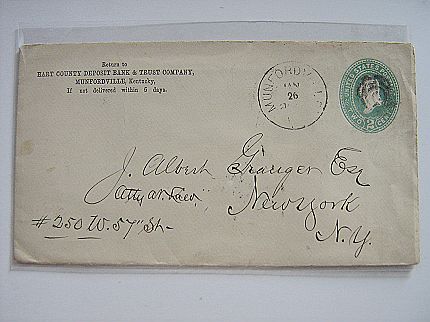 Return to
HART COUNTY DEPOSIT BANK & TRUST COMPANY,
MUNFORDVILLE, Kentucky,
If not delivered within 5 days.
MUNFORDVILLE
JAN
26
UNITED STATES
TWO 2 CENTS
J. Albert Granger Esq
Atty at Law,
New York
# 250 W. 57" St-
N.Y.